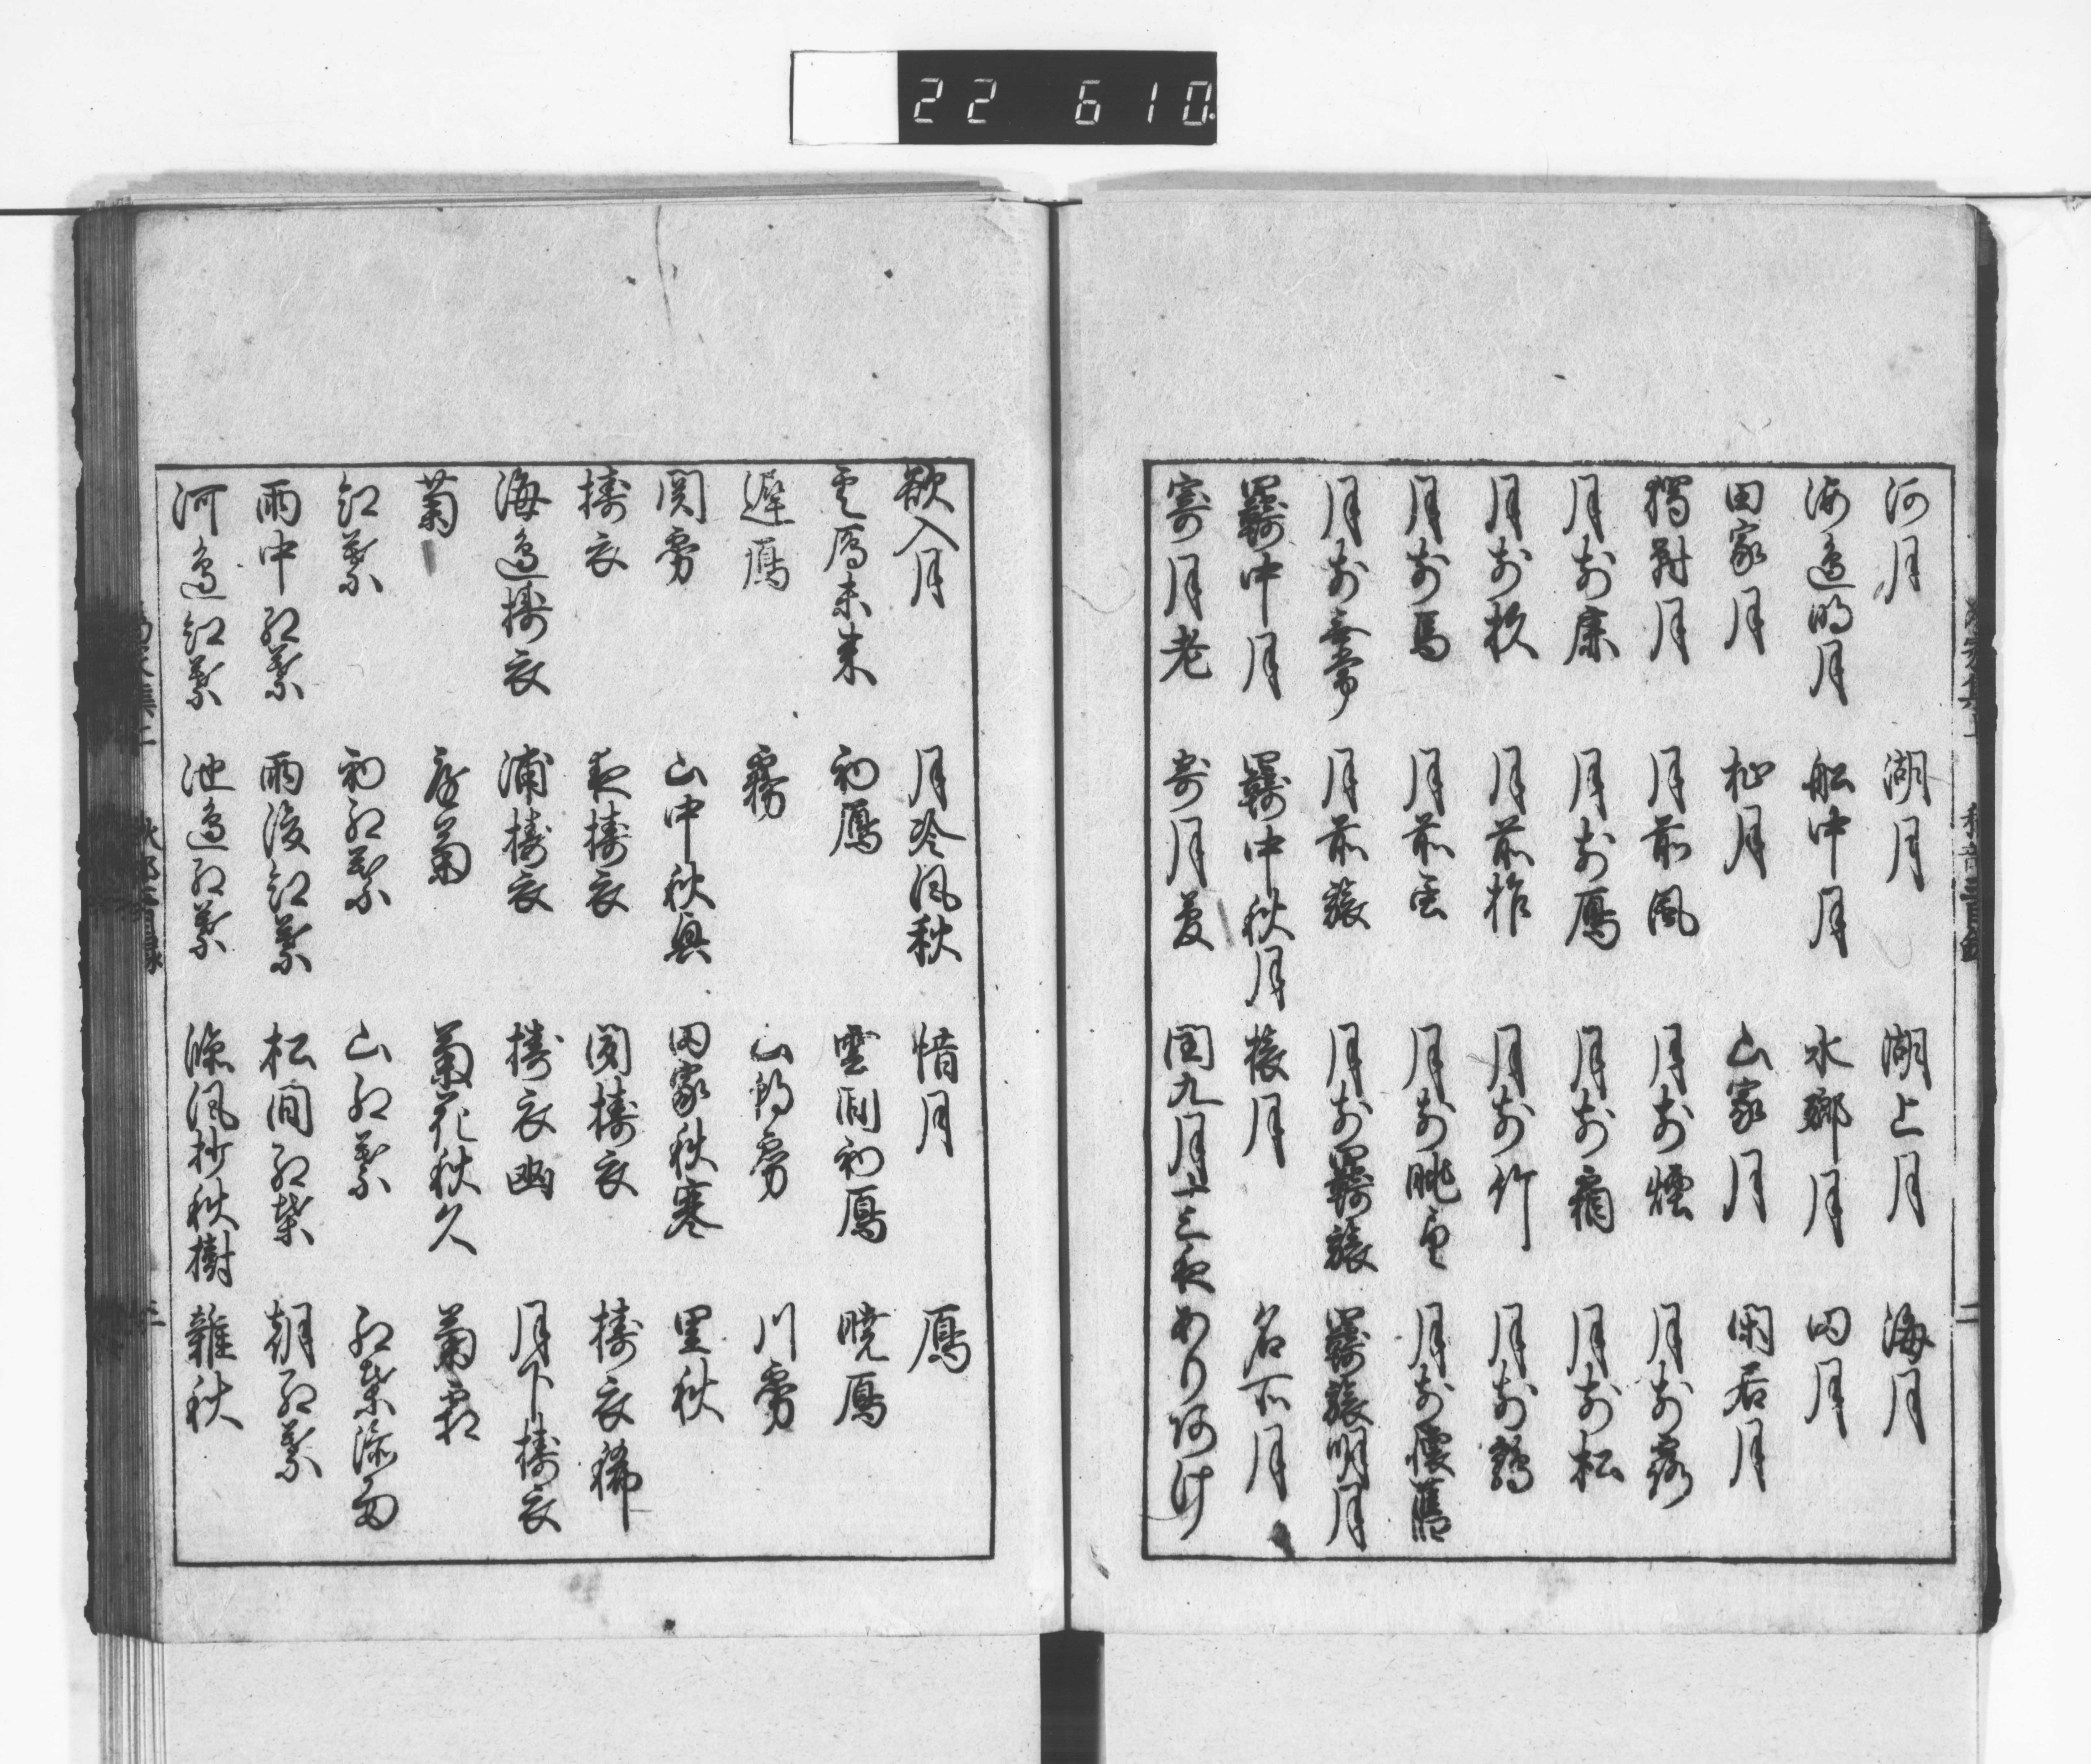 22 610
河月 湖月 湖上月 海月
海邊明月 船中月 水郷月 閑月
田家月 杜月 山家月 閑居月
獨對月 月前風 月前煙 月前露
月前鹿 月前鳫 月前 月前松
月前杉 月前柞 月前竹 月前鶴
月前馬 月前雲 月前眺望 月前懐舊
月前無常 月前旅 月前羇旅 羇旅明月
羇中月 羇中秋月 旅月 名所月
寄月老 寄月夏 閏九月十三夜ありければ
欲入月 月冷風秋 惜月 鳫
雲鳫未来 初鳫 雲間初鳫 暁鳫
遅鳫 霧 山朝霧 川霧
関霧 山中秋興 田家秋寒 里秋
擣衣 夜擣衣 聞擣衣 擣衣稀
海邊擣衣 浦擣衣 擣衣幽 月下擣衣
菊 谷菊 菊花秋久 菊霜
紅葉 初紅葉 山紅葉 紅葉添雨
雨中紅葉 雨後紅葉 松間紅葉 朝紅葉
河邊紅葉 池邊紅葉 涼風抄秋樹 雜秋